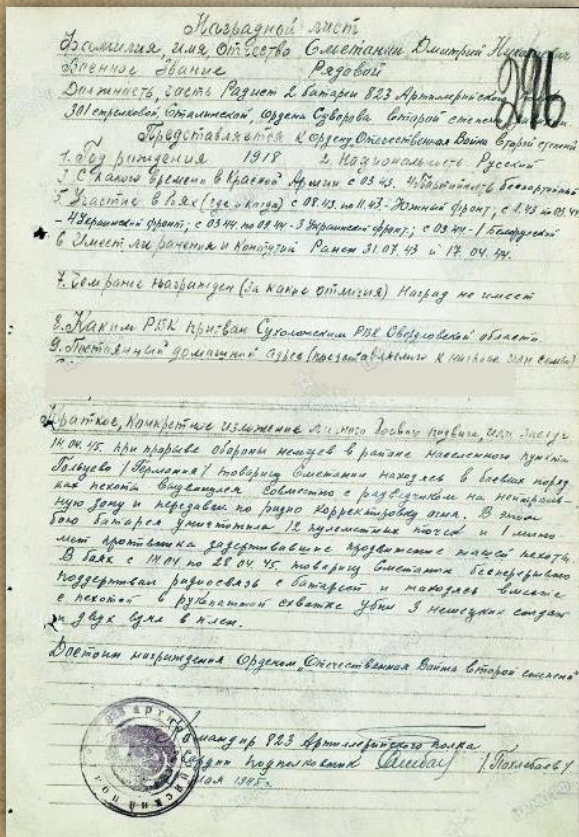 Наградной лист
Фамилия, имя, отчество Сметанин Дмитрий
Военное звание Рядовой
Должность, часть Радист 2 батареи 823 Артиллерийского
301 стрелковой, Сталинской, ордена Суворова второй степени
Представляется к Ордену Отечественная Война второй степени
1. Год рождения 1918 2. Национальность Русский
3. С какого времени в Красной Армии с 03.43. 4. Партийность беспартийный
5. Участие в боях (где и когда) с 08.43. по 11.43 - Южный фронт; с
- 4 Украинский фронт; с 03.44 по 09.44 - 3 Украинский фронт; с 09.44 - 1 Белорусской
6. Имеет ли ранения и контузии Ранен 31.07.43 и 17.04.44.
7. Чем ранее награжден (за какие отличия) Наград не имеет
8. Каким РВК призван Сухоложским РВК Свердловской области
9. Постоянный домашний адрес (представляемого к награде или семьи)
Краткое, конкретное изложение личного боевого подвига, или заслуг
14.04.45. при прорыве обороны немцев в районе населенного пункта
Гольцево /Германия/ товарищ Сметанин находясь в боевых поряд
ках пехоты выдвинулся совместно с разведчиком на нейтраль-
ную зону и передавал по радио корректировку огня. В этом
бою батарея уничтожила 12 пулеметных точек и 1 мино
мет противника задерживавшие продвижение нашей пехоты.
В боях с 14.04 по 28.04.45. товарищ Сметанин беспрерывно
поддерживал радиосвязь с батареей и находясь вместе
с пехотой в рукопашной схватке убил 3 немецких солдат
и двух взял в плен.
Достоин награждения Орденом "Отечественная Война второй степени"
Командир 823 Артиллерийского полка
Гвардии подполковник /Похлебаев/
мая 1945г.